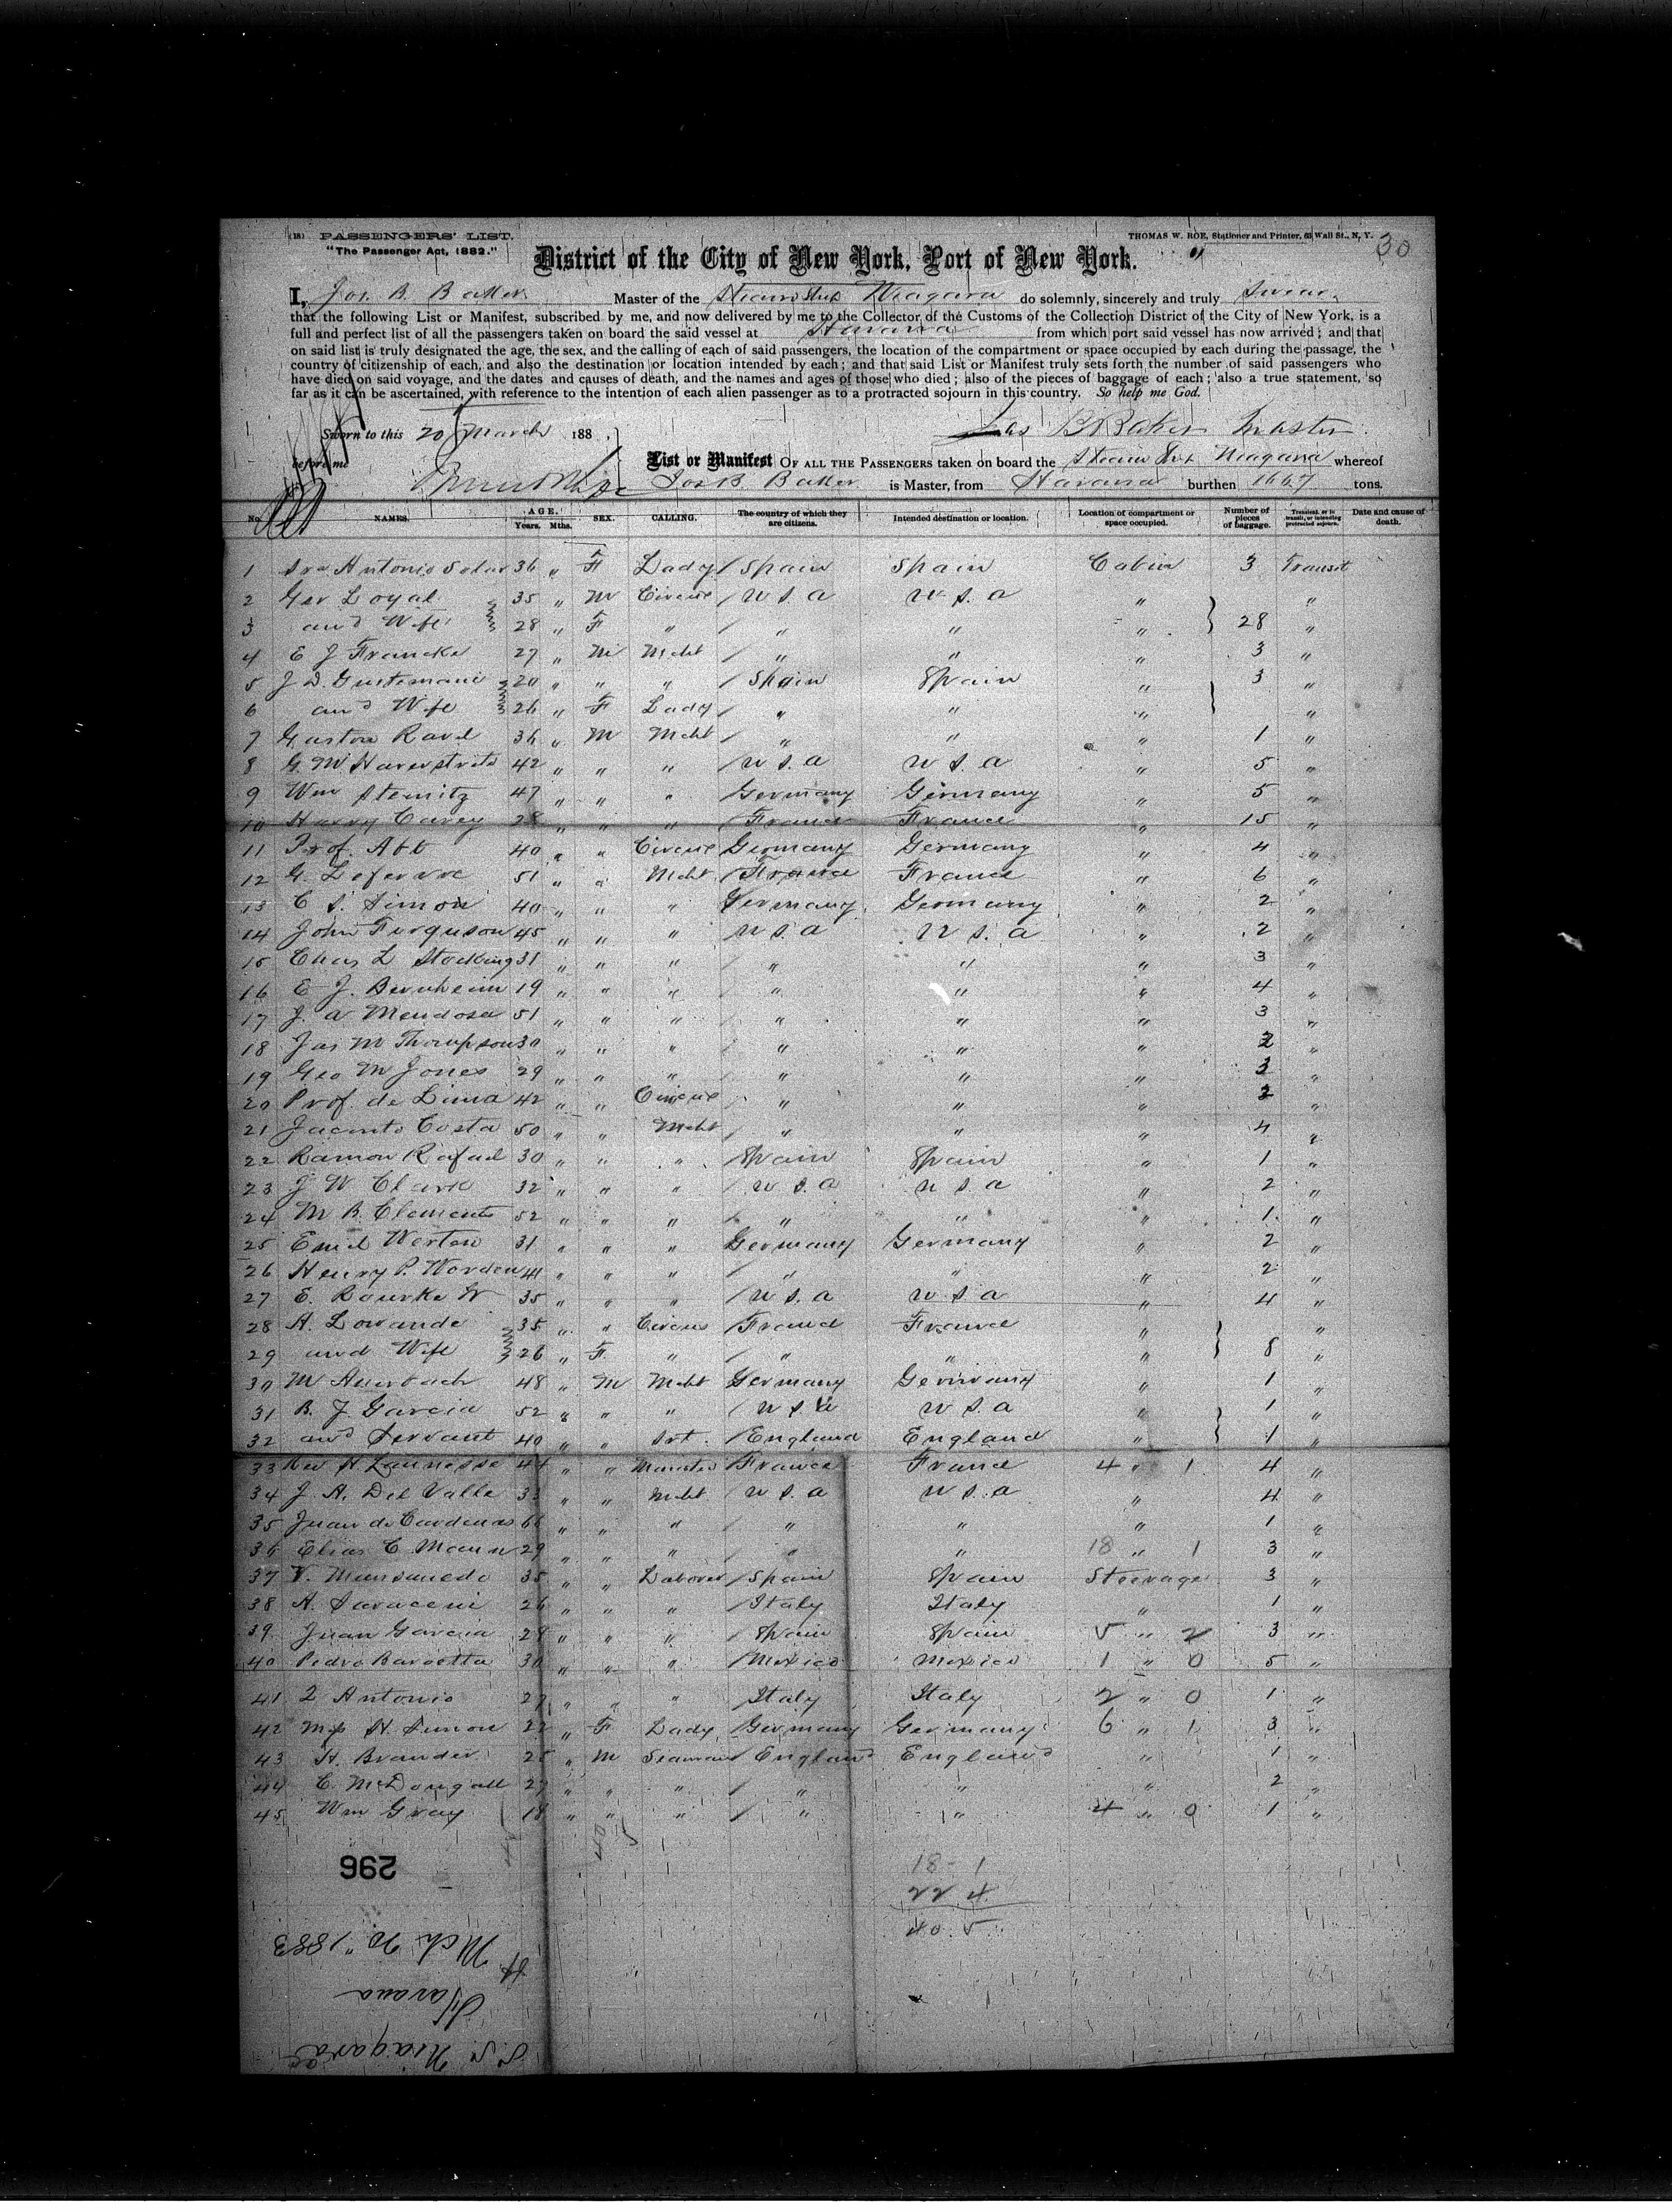 (18) PASSENGERS' LIST.
THOMAS W. ROE, Stationer and Printer, 63 Wall St., N. Y.
30
"The Passenger Act, 1882."
District of the City of New York, Port of New York.
I, Jos. B. Baker Master of the Steamship Niagara do solemnly, sincerely and truly swear
that the following List or Manifest, subscribed by me, and now delivered by me to the Collector of the Customs of the Collection District of the City of New York, is a
full and perfect list of all the passengers taken on board the said vessel at Havana from which port said vessel has now arrived; and that
on said list is truly designated the age, the sex, and the calling of each of said passengers, the location of the compartment or space occupied by each during the passage, the
country of citizenship of each, and also the destination or location intended by each; and that said List or Manifest truly sets forth the number of said passengers who
have died on said voyage, and the dates and causes of death, and the names and ages of those who died; also of the pieces of baggage of each; also a true statement, so
far as it can be ascertained, with reference to the intention of each alien passenger as to a protracted sojourn in this country. So help me God.
Sworn to this 20 March 188
Jas B Baker Master
before me
List or Manifest OF ALL THE PASSENGERS taken on board the Steam Ship Niagara whereof
Jos B. Baker is Master, from Havana burthen 1667 tons.
No. NAMES. AGE. Years. Mths. SEX. CALLING. The country of which they are citizens. Intended destination or location. Location of compartment or space occupied. Number of pieces of baggage. Transient, or in transit, or intending protracted sojourn. Date and cause of death.
1 Sra Antonio Solar 36 " F Lady Spain Spain Cabin 3 Transit
2 Geo Loyal 35 " M Circus U S A U S A " "
3 and Wife 28 " F " " " " 28 "
4 E J Francke 27 " M Mcht " " " 3 "
5 J D. 20 " " " Spain Spain " 3 "
6 and Wife 26 " F Lady " " " "
7 Gaston Ravel 36 " M Mcht " " " 1 "
8 G. M 42 " " " U S A U S A " 5 "
9 Wm Steinitz 47 " " " Germany Germany " 5 "
10 Harry Carey 28 " " " France France " 15 "
11 Prof. Abt 40 " " Circus Germany Germany " 4 "
12 G. Lefevre 51 " " Mcht France France " 6 "
13 C S. Simon 40 " " " Germany Germany " 2 "
14 John Ferguson 45 " " " U S A U S. A " 2 "
15 Chas L Stocking 31 " " " " " " 3 "
16 E J. Bernheim 19 " " " " " " 4 "
17 J. A Mendosa 51 " " " " " " 3 "
18 Jas M Thompson 30 " " " " " " 2 "
19 Geo M Jones 29 " " " " " " 3 "
20 Prof. de Lima 42 " " Circus " " " 2 "
21 Jacinto Costa 50 " " Mcht " " " 4 "
22 Ramon Rafael 30 " " " Spain Spain " 1 "
23 J W Clark 32 " " " U S A U S A " 2 "
24 M B. Clements 52 " " " " " " 1 "
25 Emil Werton 31 " " " Germany Germany " 2 "
26 Henry P. Worden 41 " " " " " " 2 "
27 E. Rourke 35 " " " U S. A U S A " 4 "
28 A. Lowande 35 " " Circus France France " "
29 and Wife 26 " F. " " " " 8 "
30 M Auerbach 48 " M Mcht Germany Germany " 1 "
31 B. J Garcia 52 " " " U S A U S. A " 1 "
32 and Servant 40 " " Svt. England England " 1 "
33 Rev H. 44 " " Minister France France 4 " 1 4 "
34 J. A. Del Valle 33 " " Mcht U S. A U S. A " 4 "
35 Juan de Cardenas 66 " " " " " " 1 "
36 Elias C Mann 29 " " " " " 18 " 1 3 "
37 V. 35 " " Laborer Spain Spain Steerage 3 "
38 A. Saraceni 26 " " " Italy Italy " 1 "
39. Juan Garcia 29 " " " Spain Spain 5 " 2 3 "
40 Pedro 30 " " " Mexico Mexico 1 " 0 5 "
41 Antonio 27 " " " Italy Italy 2 " 0 1 "
42 Mrs H. Simon 22 " F Lady Germany Germany 6 " 1 3 "
43 H. Brander 25 " M Seaman England England " 1 "
44 C. McDougall 27 " " " " " " 2 "
45 Wm Gray 18 " " " " " 4 " 0 1 "
296
18 - 1
22 4
40 5
S.S. Niagara
Havana
Mch 20" 1883